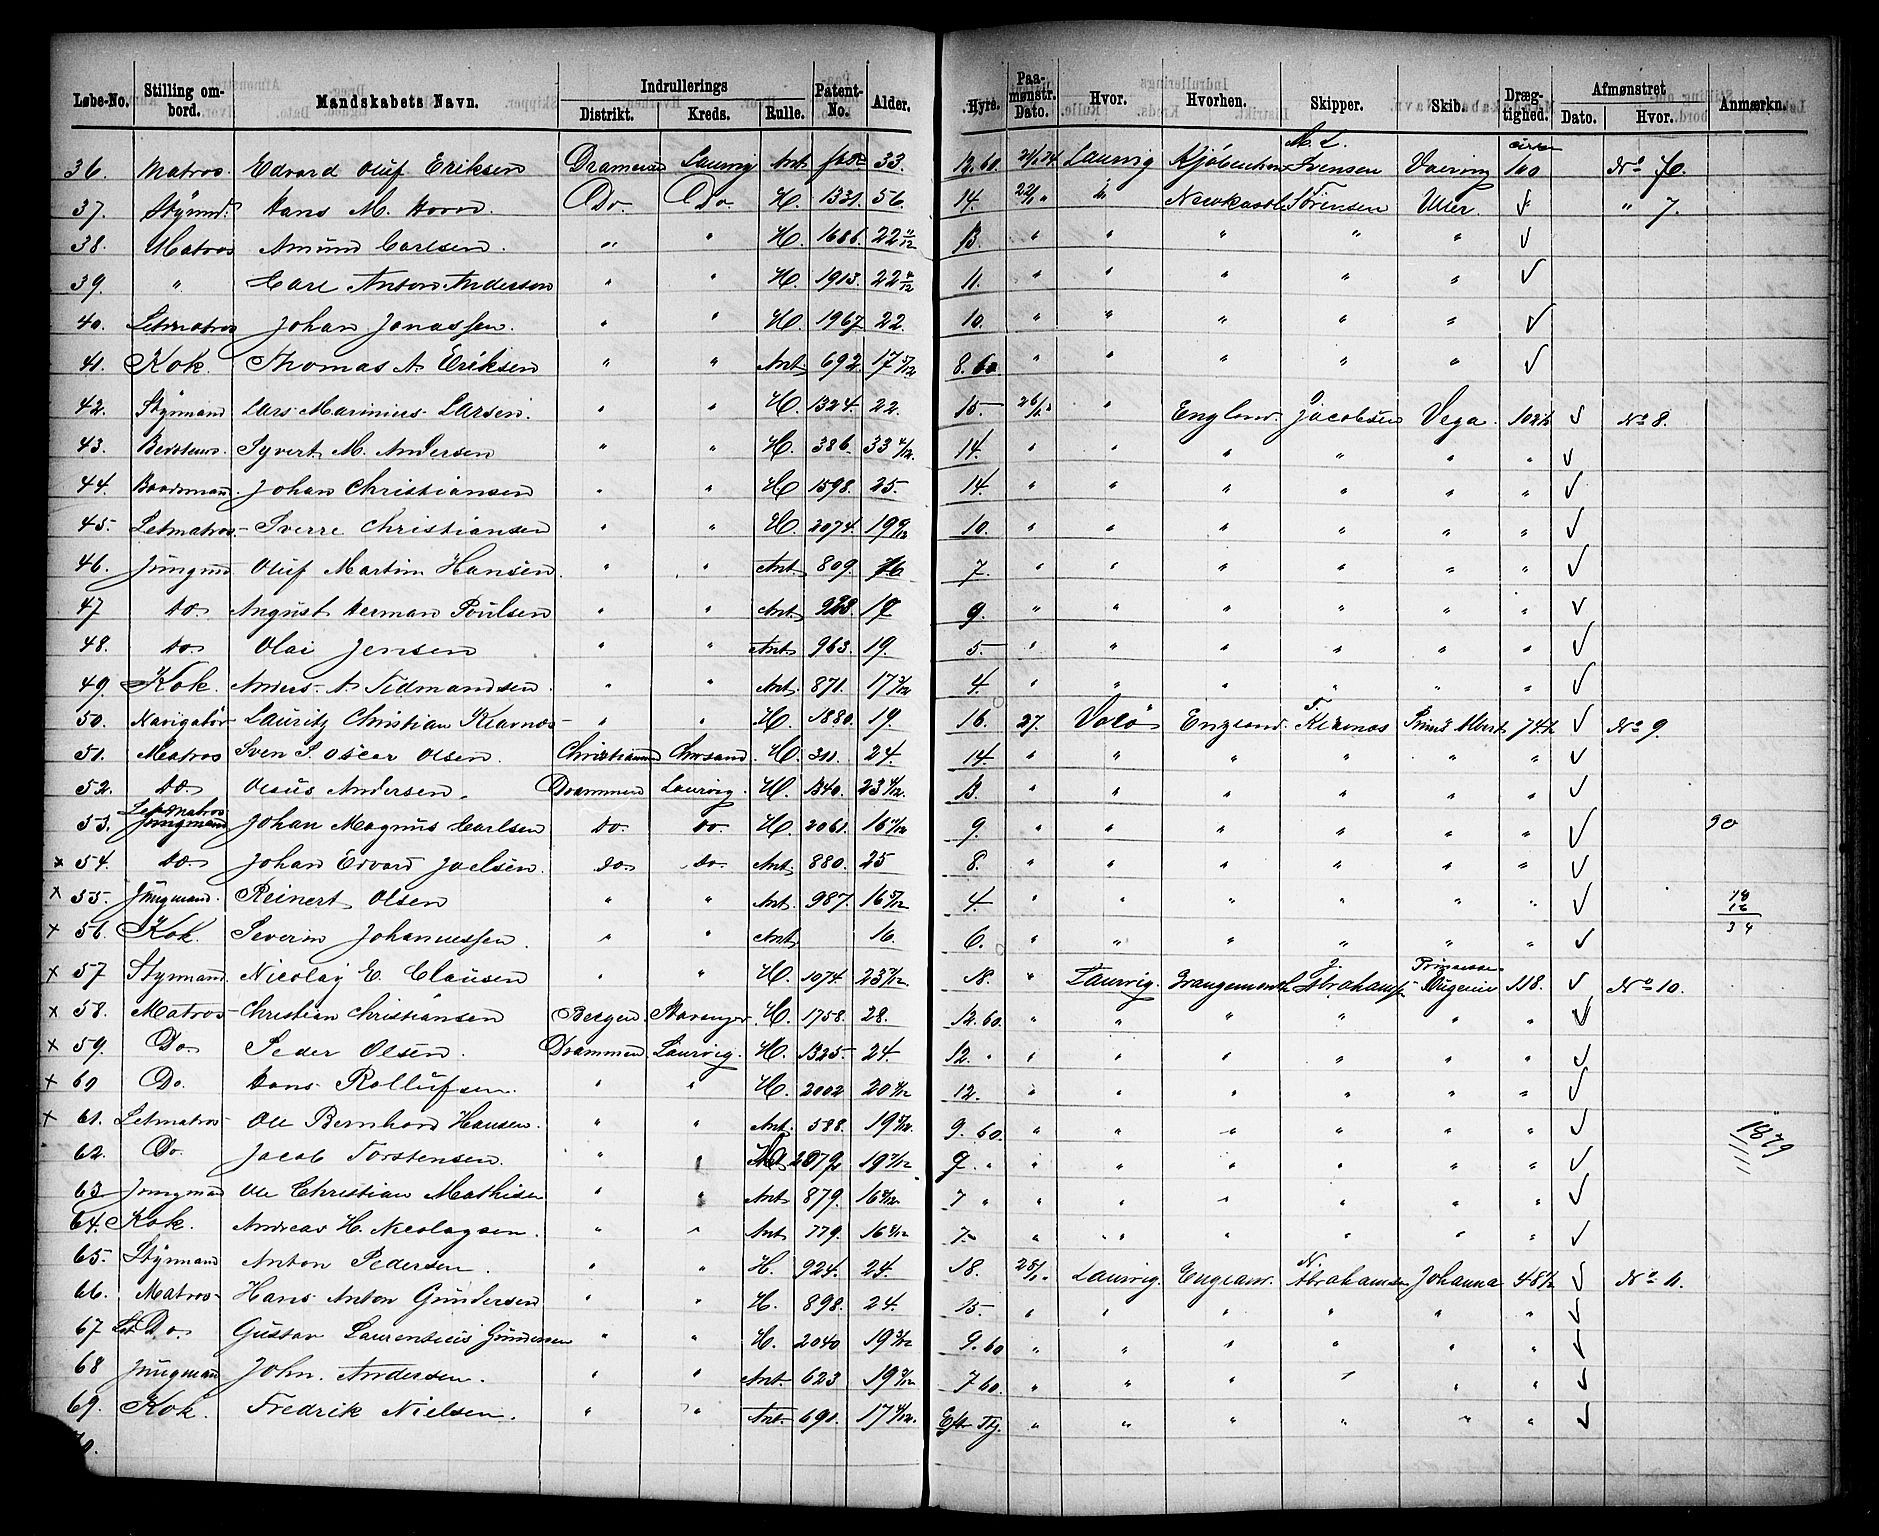 Løbe-No. Stilling ombord. Mandskabets Navn. Indrullerings Distrikt. Kreds. Rulle. Patent-No. Alder. Hyre. Paamønstr. Dato. Hvor. Hvorhen. Skipper. Skib. Drægtighed. Afmønstret Dato. Hvor. Anmærkn.
36. Matros. Edvard Oluf Eriksen Laurvig Ant. 33. 12.60. Laurvig Kjøbenhavn Svensen 100 No
37. Styrmd. Hans M. Do. Do H. 1331. 56. 14. 22/1 " " Sörensen " 7.
38. Matros Amund Carlsen. " " H. 1686. 22 13. " " " " "
39. " Carl Anton Anderson " " H. 1913. 22 11. " " " " "
40. Letmatros Johan Jonassen. " " H. 1967 22. 10. " " " " "
41. Kok. Thomas A. Eriksen " " Ant. 692 17 8.60 " " " " "
42. Styrmand Lars Marinius Larsen. " " H. 1324. 22. 15- " England. Jacobsen Vega. No 8.
43. Syvert M. Andersen " " H. 386. 33 14. " " " " " "
44. Baadsmand. Johan Christiansen " " H 1598. 25. 14. " " " " " "
45. Letmatros. Sverre Christiansen " " H. 2074. 19 9/12 10. " " " " " "
46. Jungmd. Oluf Martin Hansen. " " Ant. 809. 16 7. " " " " " "
47 Do. August Herman Poulsen " " Ant. 9. " " " " " "
48. Do. Olai Jensen " " Ant. 963. 19. 5- " " " " " "
49. Kok. Anders A. Tidmandsen. " " Ant. 871. 17 4. " " " " " "
50. Navigatör Lauritz Christian Klavnæs " " H. 1880. 19. 16. 27. England. 74 No 9.
51. Matros Sven S. Oscar Olsen. H. 24. 14. " " " " " "
52. Do Olaus Andersen. Drammen Laurvig. H. 1340. 23 13. " " " " " "
53. Letmatros Jungmand Johan Magnus Carlsen Do. Do. H. 2061. 16 9. " " " " " " 90
x 54. Do Johan Edvard Joelsen. Do. Do. Ant. 880. 25 8. " " " " " "
x 55. Jungmand. Reinert Olsen " " Ant. 987. 16 5/12 4. " " " " " " 18 16
x 56. Kok. Severin Johannessen. " " Ant. 16. 6. " " " " " " 34
x 57 Styrmand. Nicolay E. Clausen " " H. 1074. 23 18. " Laurvig. Grangemouth J. Abrahamsen Prinsesse Eugenie 118. No 10.
x 58. Matros Christian Christiansen Bergen. Stavanger. H. 1758. 28. 12.60. " " " " " "
x 59. Do. Peder Olsen. Drammen Laurvig. H. 1325. 24. 12. " " " " " " "
x 60 Do. Hans Rollufsen. " " H. 2002 20 12. " " " " " "
x 61. Letmatros Ole Bernhard Hansen. " " Ant. 588. 19 9.60. " " " " " " 1879
62. Do. Jacob Torstensen. " " 2079 19 9. " " " " " " "
63 Jungmand Ole Christian Mathisen " " Ant 879. 16 7 " " " " " " "
64. Kok. Andreas H. Nicolaysen. " " Ant 779. 16 7- " " " " " "
65. Styrmand Anton Pedersen. " " H. 924. 24. 18. Laurvig. England. N. Abrahamsen Johanna 48 No 11.
66. Matros Hans Anton Gundersen " " H. 898. 24. 15- " " " " " "
67 Let Do. Gustav Laurentius Gundersen " " H. 2040 19 9.60 " " " " " "
68 Jungmand John. Andersen. " " Ant. 623 19 7.60. " " " " " "
69. Kok. Fredrik Nielsen. " " Ant. 691. 17 Eft. Tkj. " " " " " "